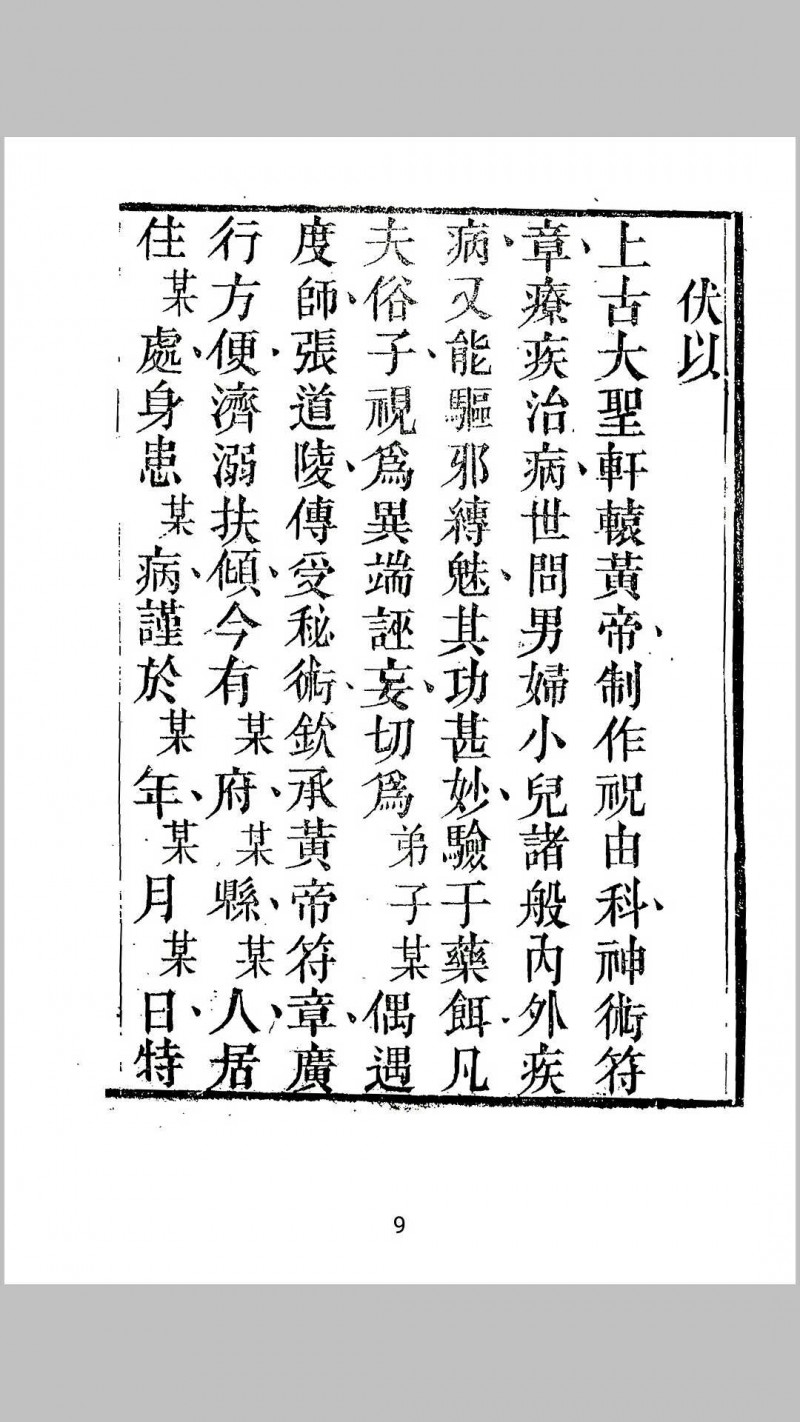 伏以
上古大聖軒轅黃帝、制作祝由科、神術符
章、療疾治病、世問男婦小兒諸般內外疾
病、又能驅邪縛魅、其功甚妙、驗于藥餌、凡
夫俗子、視為異端誣妄、切為弟子某偶遇
度師、張道陵、傳受秘術、欽承黃帝符章、廣
行方便、濟溺扶傾、今有某府、某縣、某人、居
住某處、身患某病、謹於某年、某月某日、特
9